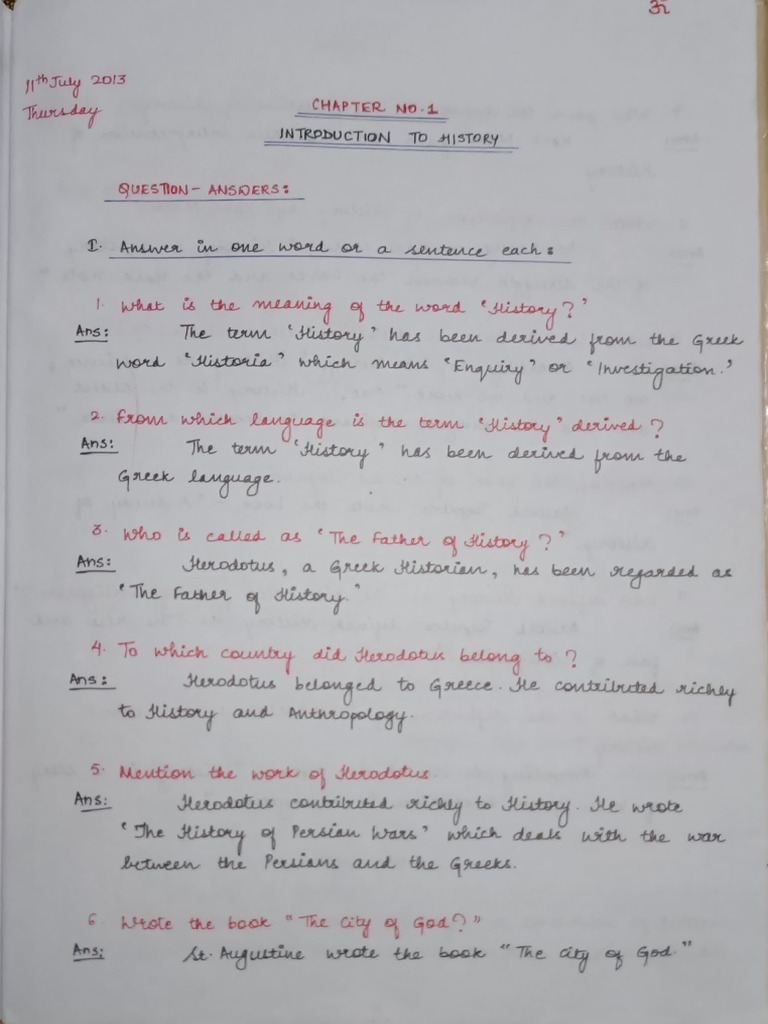 ॐ
11th July 2013
Thursday
CHAPTER NO.1
INTRODUCTION TO HISTORY
QUESTION - ANSWERS:
I. Answer in one word or a sentence each:
1. What is the meaning of the word 'History?'
Ans: The term 'History' has been derived from the Greek
word 'Historia' which means 'Enquiry' or 'Investigation.'
2. From which language is the term 'History' derived?
Ans: The term 'History' has been derived from the
Greek language.
3. Who is called as 'The Father of History?'
Ans: Herodotus, a Greek Historian, has been regarded as
'The Father of History.'
4. To which country did Herodotus belong to?
Ans: Herodotus belonged to Greece. He contributed richly
to History and Anthropology.
5. Mention the work of Herodotus.
Ans: Herodotus contributed richly to History. He wrote
'The History of Persian Wars' which deals with the war
between the Persians and the Greeks.
6. Wrote the book "The City of God?"
Ans: St. Augustine wrote the book "The City of God."